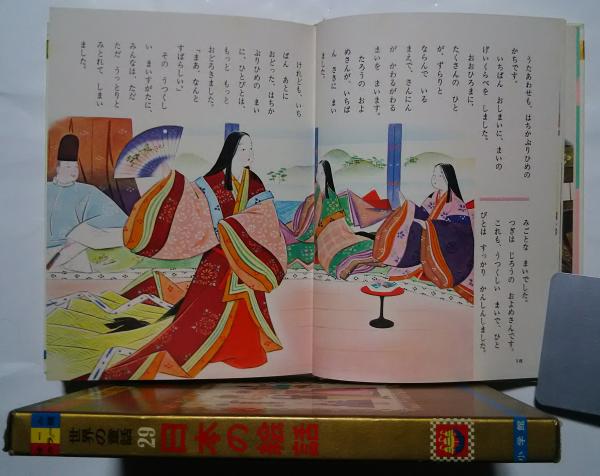 うたあわせも、はちかぶりひめの
かちです。
いちばん おしまいに、まいの
げいくらべを しました。
おおひろまに、
たくさんの ひと
が、ずらりと
ならんで いる
まえで、さんにん
が かわるがわる
まいを まいます。
たろうの およ
めさんが、いちば
ん さきに まい
ました。
みごとな まいでした。
つぎは じろうの およめさんです。
これも、うつくしい まいで、ひと
びとは すっかり かんしんしました。
けれども、いち
ばん あとに
おどった、はちか
ぶりひめの まい
に、ひとびとは、
もっと もっと
おどろきました。
「まあ、なんと
すばらしい。」
その うつくし
い まいすがたに、
みんなは、ただ
ただ うっとりと
みとれて しまい
ました。
世界の童話
29
日本の絵話
小学館